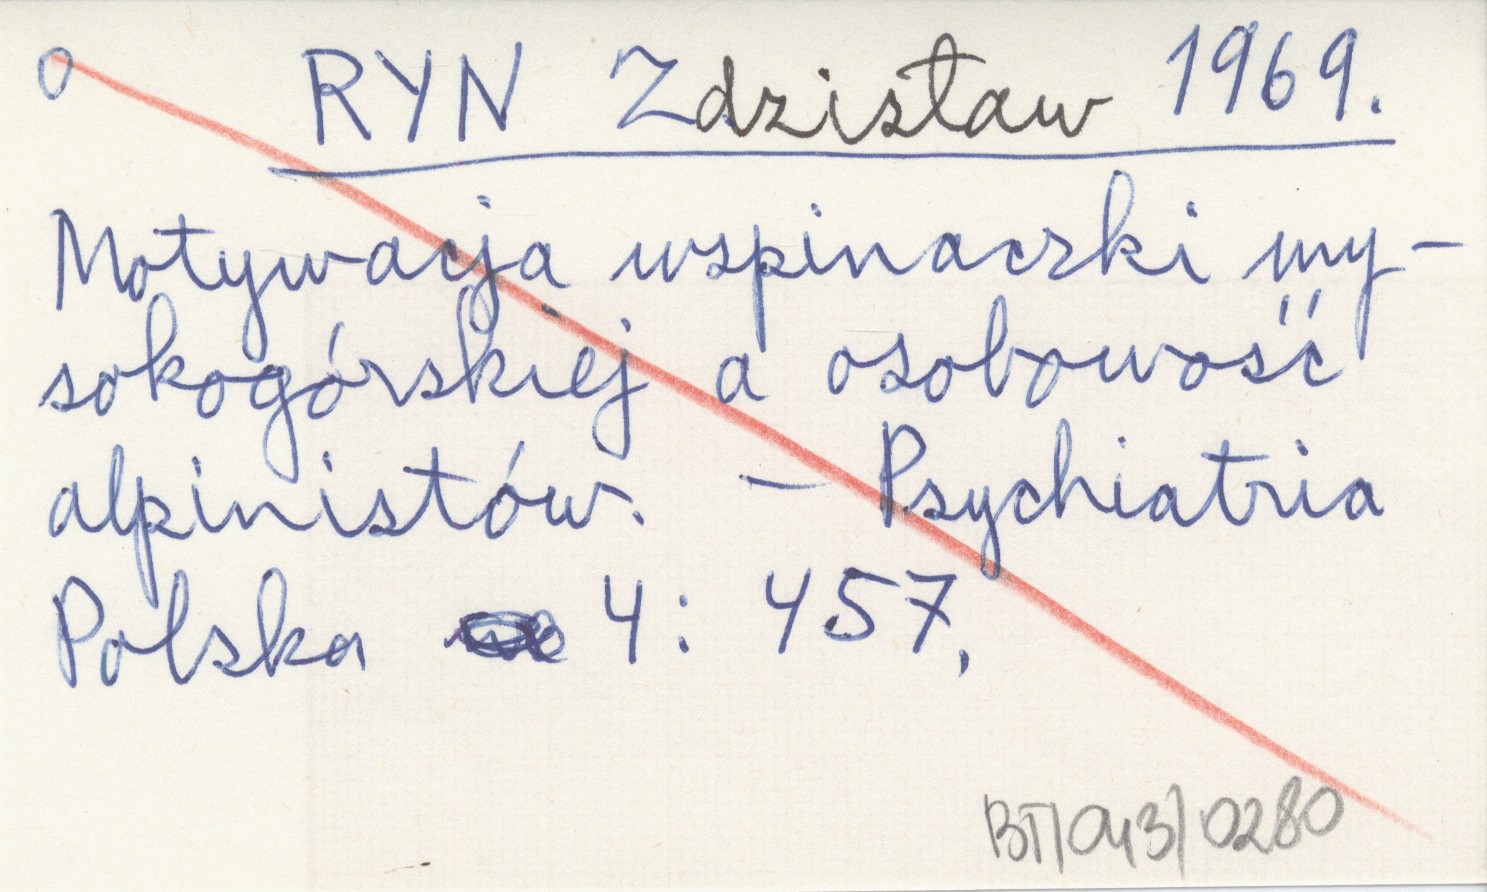 0 RYN Zdzisław 1969.
Motywacja wspinaczki wy-
sokogórskiej a osobowość
alpinistów. - Psychiatria
Polska 4: 457,
BT/043/0280